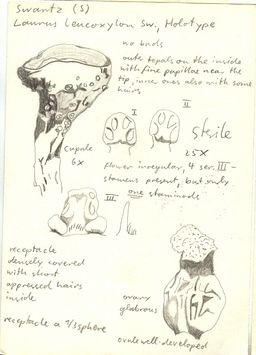 Swartz (S)
Laurus Leucoxylon Sw., Holotype
no buds
oute tepals on the inside
with fine papillae near the
tip, inner ones also with some
hairs
I
II
sterile
cupule
6x
25x
flower irregular, 4 ser. III-
stamens present, but only
one staminode
III
receptacle
densely covered
with short
appressed hairs
inside
receptacle a 2/3 sphere
ovary
glabrous
ovule well-developed